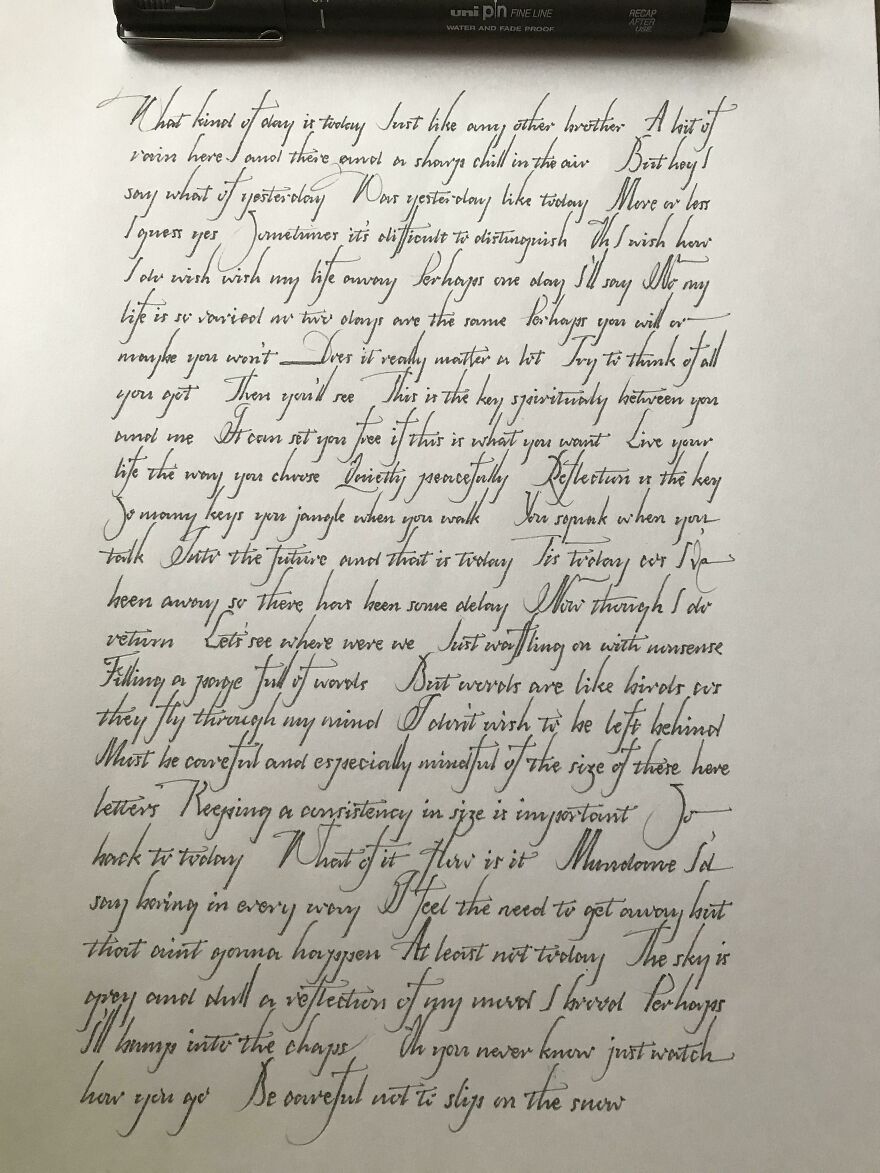 uni pin FINE LINE
WATER AND FADE PROOF
RECAP
AFTER
USE
What kind of day is today Just like any other brother A bit of
rain here I and there and a sharp chill in the air But hey I
say what of yesterday Was yesterday like today More or less
I guess yes Sometimes it's difficult to distinguish Oh I wish how
I do wish wish my life away Perhaps one day I'll say No my
life is so varied no two days are the same Perhaps you will or
maybe you won't Does it really matter a lot Try to think of all
you got Then you'll see This is the key spiritualy between you
and me It can set you free if this is what you want Live your
life the way you choose Quietly peacefully Reflection is the key
So many keys you jangle when you walk You squak when you
talk Into the future and that is today Tis today as I've
been away so there has been some delay Now though I do
return Let's see where were we Just waffling on with nonsense
Filling a page full of words But words are like birds as
they fly through my mind I don't wish to be left behind
Must be careful and especially mindful of the size of these here
letters Keeping a consistency in size is important So
back to today What of it How is it Mundane I'd
say boring in every way I feel the need to get away but
that aint gonna happen At least not today The sky is
grey and dull a reflection of my mood I brood Perhaps
I'll bump into the chaps Oh you never know just watch
how you go Be careful not to slip on the snow